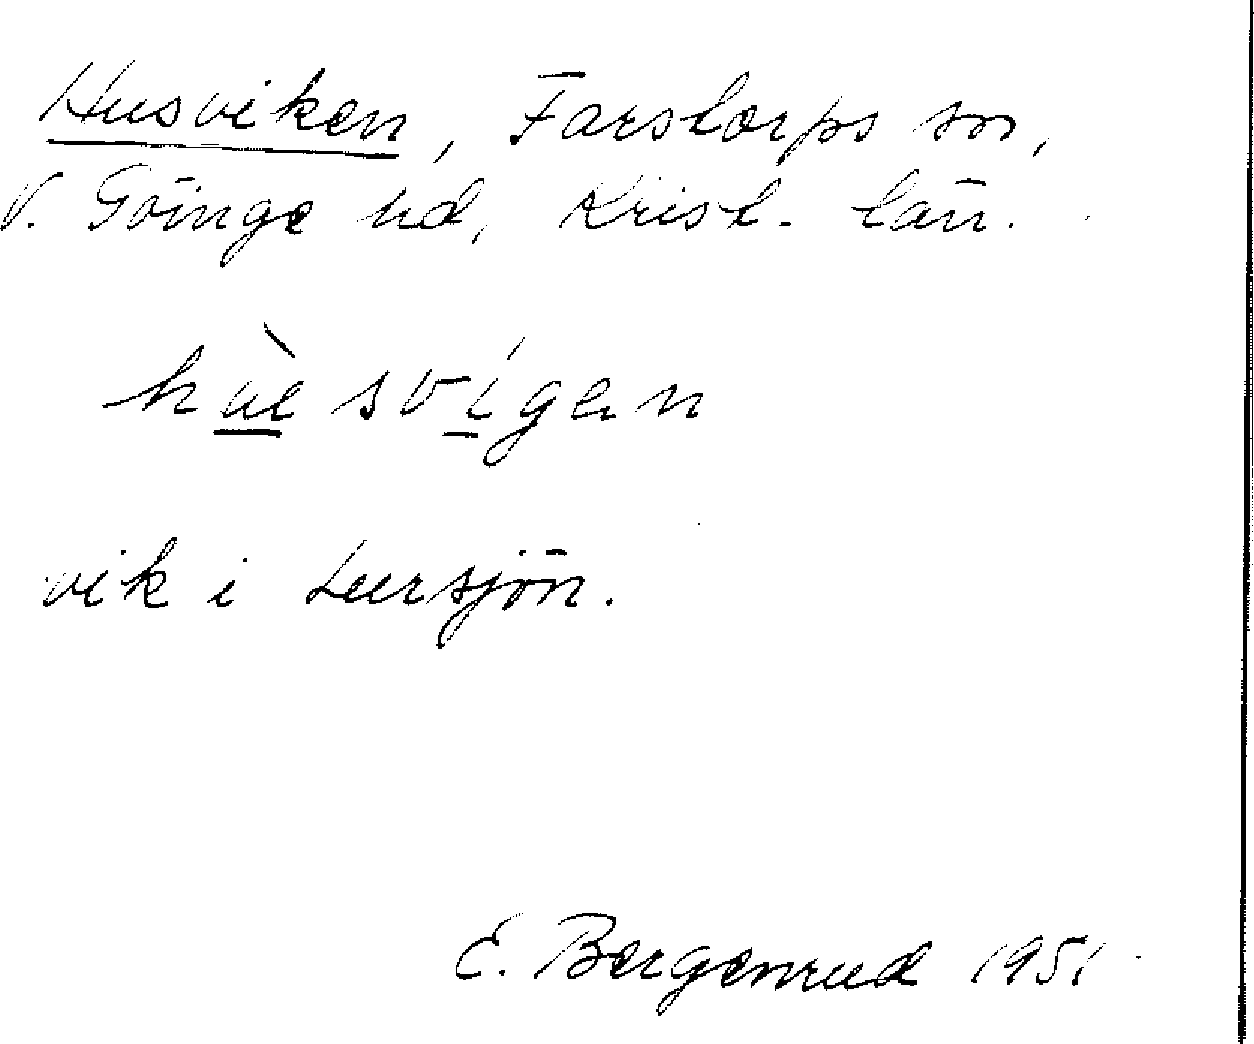 Husviken, Farstorps sn,
V. Göinge hd, Krist. län.
hùesvígen
vik i Luersjön.
E. Bergenrud 1951